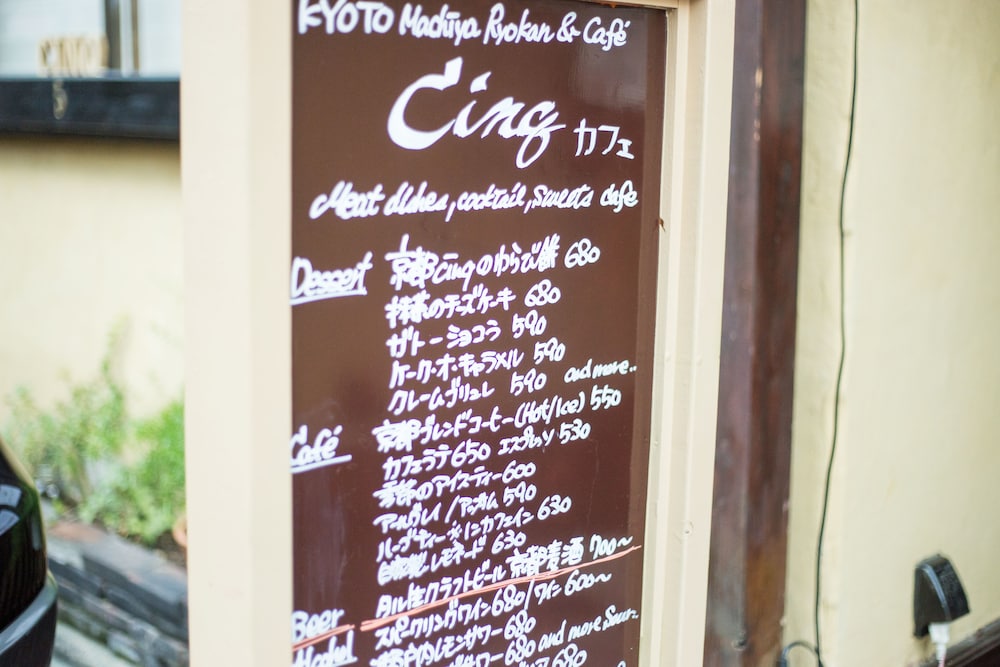 KYOTO Machiya Ryokan & Café
Cinq カフェ
Meat dishes, cocktail, Sweets cafe
Dessert 京都Cinqのわらび餅 680
抹茶のチーズケーキ 680
ガトーショコラ 590
ケーク・オ・キャラメル 590
クレームブリュレ 590 and more..
Café 京都ブレンドコーヒー(Hot/Ice) 550
カフェラテ650 エスプレッソ 530
京都のアイスティー600
アールグレイ/アッサム 590
ハーブティー※ノンカフェイン 630
自家製レモネード 630
Beer 樽生クラフトビール 京都麦酒 700~
Alcohol スパークリングワイン680/ワイン 600~
レモンサワー 680 and more Sour.
サワー 680
680